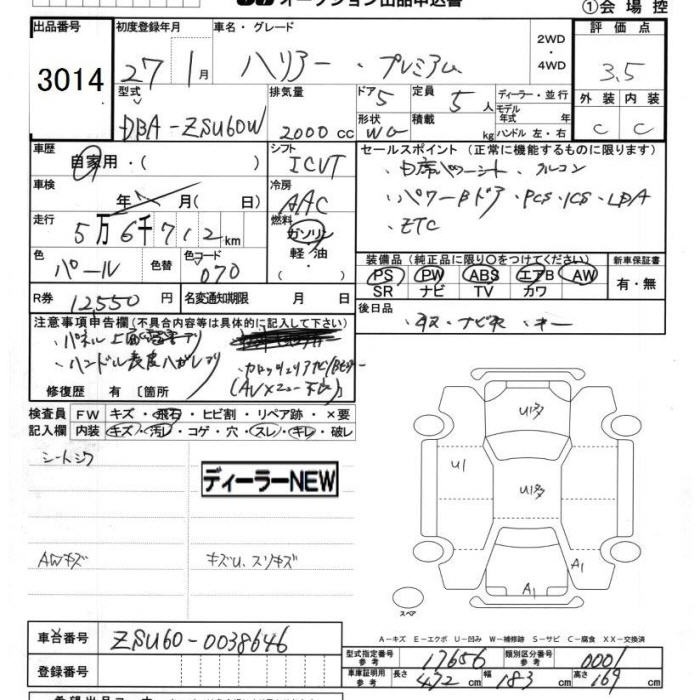 オークション出品申込書
①会場控
出品番号 初度登録年月 車名・グレード 2WD・4WD 評価点
3014 27 1月 ハリアー・プレミアム 3.5
型式 排気量 ドア 5 定員 5人 ディーラー・並行 外装 内装
DBA-ZSU60W 2000cc 形状 WG 積載 kg モデル年式 年 ハンドル 左・右 C C
車歴 自家用・( ) シフト ICVT セールスポイント(正常に機能するものに限ります)
車検 年 月( 日) 冷房 AAC
・パワーBドア・PCS・ICS・LDA
・ETC
走行 5万6千712km 燃料 ガソリン 軽油 ・( )
色 パール 色替 色コード 070 装備品(純正品に限り○をつけてください) 新車保証書
PS PW ABS エアB AW 有・無
SR ナビ TV カワ
R券 12,550円 名変通知期限 月 日 後日品
・取・ナビ取・キー
注意事項申告欄(不具合内容等は具体的に記入して下さい)
修復歴 有[箇所
検査員 FW キズ・飛石・ヒビ割・リペア跡・×要
記入欄 内装 キズ・汚レ・コゲ・穴・スレ・キレ・破レ
シートシワ
ディーラーNEW
AWキズ キズU、スリキズ
U1多
U1
U1多
A1
A1
スペア
A-キズ E-エクボ U-凹み W-補修跡 S-サビ C-腐食 XX-交換済
車台番号 ZSU60-0038646
型式指定番号 参考 17656 類別区分番号 参考 0001
登録番号 車庫証明用 参考 長さ 472cm 幅 183cm 高さ 169cm